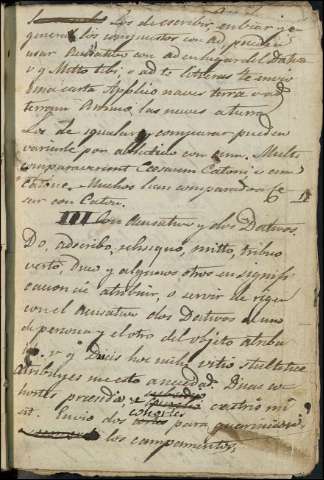 Los de escribir, enbiar, y
los compuestos con ad, pueden
usar Acusativo con ad en lugar del Dativo
v g Mitto tibi, o ad te litteras te envio
una carta Applico naves terræ o ad
terram Arrimo las naves a tierra
Los de igualar y comparar pueden
variarle por ablativo con cum. Multi
compararierunt Cæsarem Catoni, o cum
Catone, Muchos han comparado a Ce
sar con Caton.
III Con Acusativo y dos Dativos.
Do, adscribo, relinquo, mitto, tribuo
verto, Duco y algunos otros en signifi
cacion de atribuir, o servir de rigen
con el Acusativo dos Dativos el uno
de persona y el otro del objeto atribu
v. g. Ducis hoc mihi vitio stultitiæ
atribuyes me esto a necedad. Duas co
hortes præsidio castris mi
sit. Envio dos cohortes para guarnicion
los campamentos.